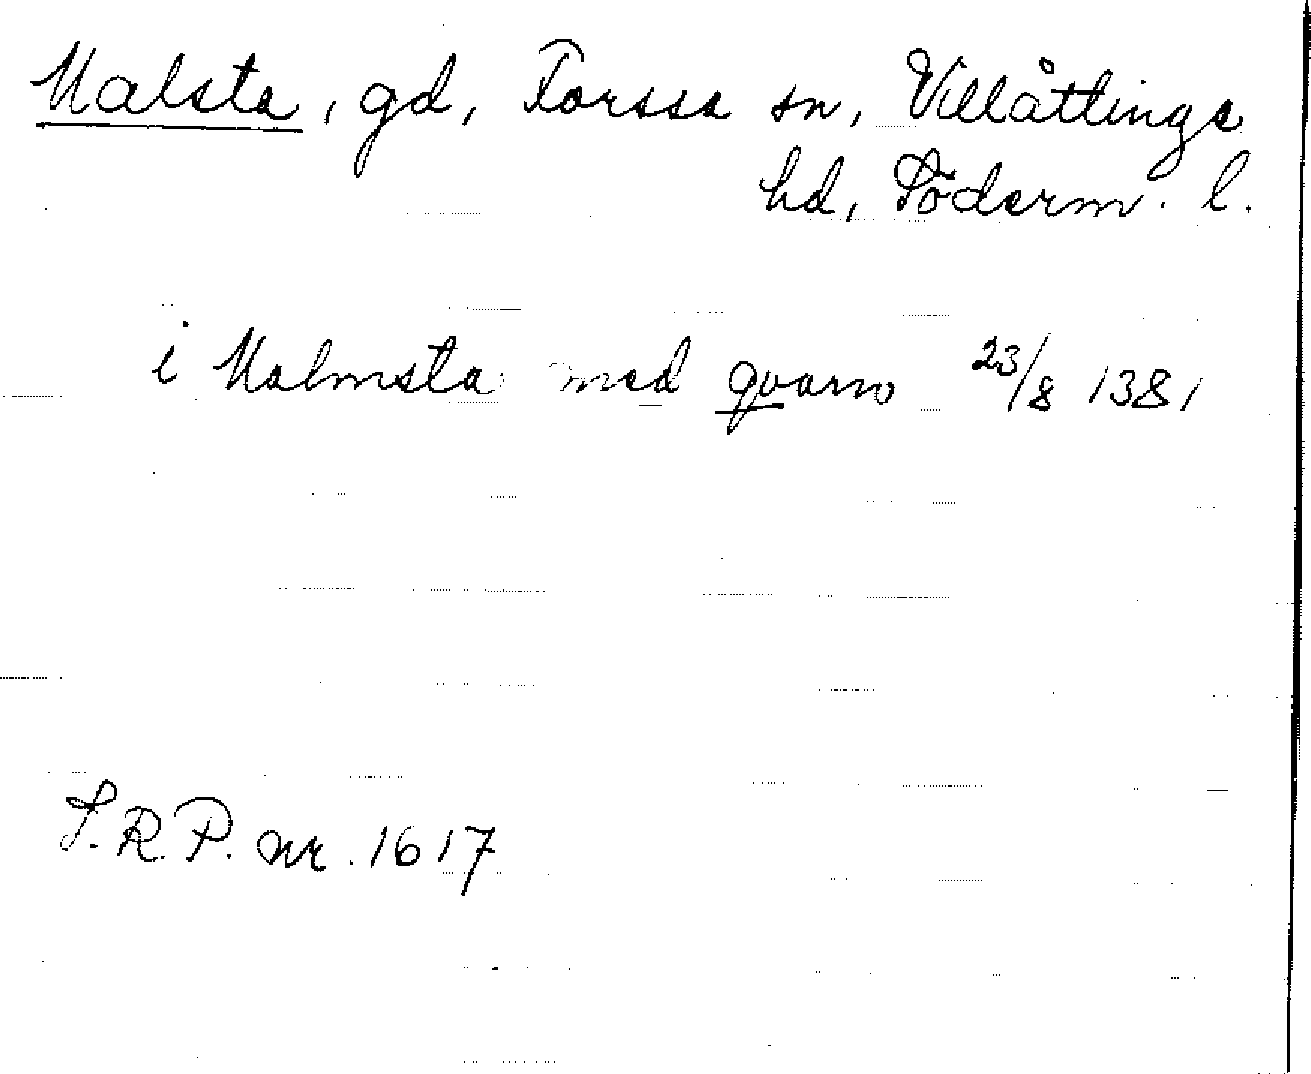 Malsta, gd, Forssa sn, Villåttinge
hd, Söderm. l.
i Malmsta med qvarn 23/8 1381
S.R.P. nr. 1617